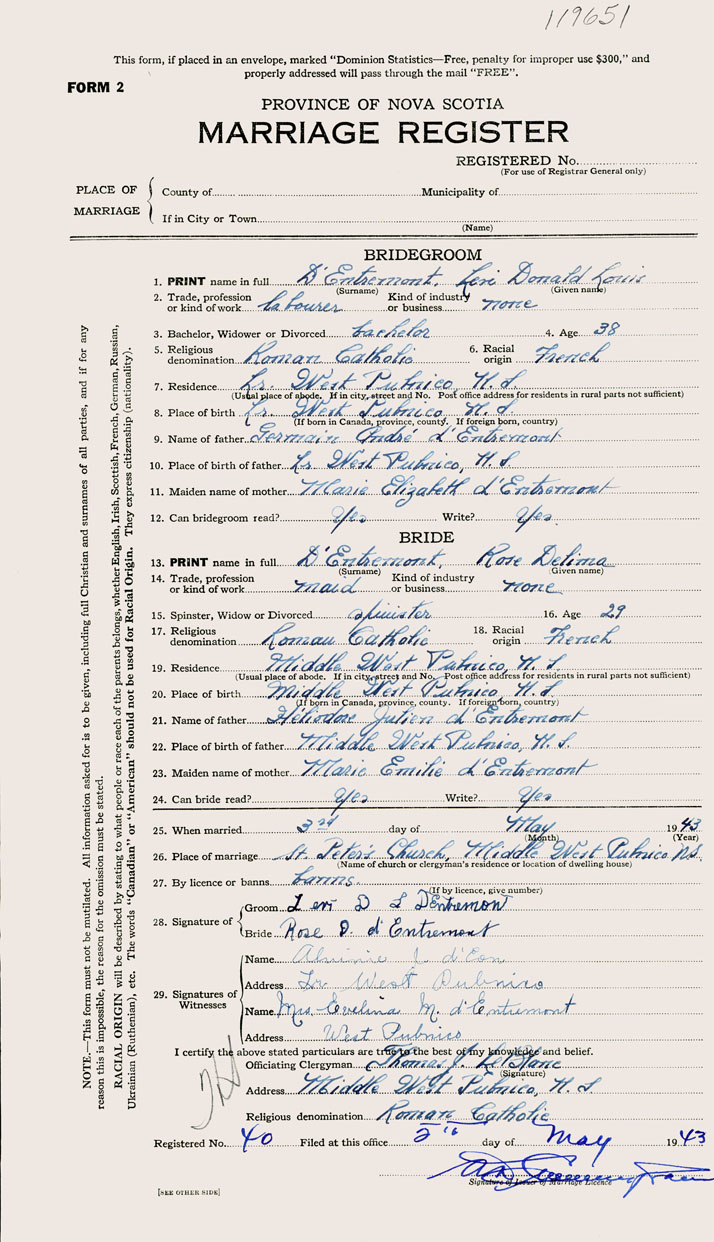 119651
This form, if placed in an envelope, marked "Dominion Statistics—Free, penalty for improper use $300," and
properly addressed will pass through the mail "FREE".
FORM 2
PROVINCE OF NOVA SCOTIA
MARRIAGE REGISTER
REGISTERED No.
(For use of Registrar General only)
PLACE OF MARRIAGE
County of Municipality of
If in City or Town
(Name)
BRIDEGROOM
1. PRINT name in full D'Entremont, Levi Donald Louis
(Surname) (Given name)
2. Trade, profession or kind of work labourer Kind of industry or business none
3. Bachelor, Widower or Divorced bachelor 4. Age 38
5. Religious denomination Roman Catholic 6. Racial origin French
7. Residence Lr. West Pubnico, N. S.
(Usual place of abode. If in city, street and No. Post office address for residents in rural parts not sufficient)
8. Place of birth Lr. West Pubnico N. S
(If born in Canada, province, county. If foreign born, country)
9. Name of father Germain André d'Entremont
10. Place of birth of father Lr West Pubnico, N. S
11. Maiden name of mother Marie Elizabeth d'Entremont
12. Can bridegroom read? Yes Write? Yes.
BRIDE
13. PRINT name in full D'Entremont, Rose Delima
(Surname) (Given name)
14. Trade, profession or kind of work maid Kind of industry or business none
15. Spinster, Widow or Divorced spinster 16. Age 29
17. Religious denomination Roman Catholic 18. Racial origin French
19. Residence Middle West Pubnico, N. S.
(Usual place of abode. If in city, street and No. Post office address for residents in rural parts not sufficient)
20. Place of birth Middle West Pubnico, N. S
(If born in Canada, province, county. If foreign born, country)
21. Name of father Héliodore Julien d'Entremont
22. Place of birth of father Middle West Pubnico, N. S.
23. Maiden name of mother Marie Emilie d'Entremont
24. Can bride read? Yes Write? Yes
25. When married 3rd day of May 1943
(Month) (Year)
26. Place of marriage St. Peter's Church, Middle West Pubnico N.S.
(Name of church or clergyman's residence or location of dwelling house)
27. By licence or banns banns
(If by licence, give number)
28. Signature of
Groom Levi D L DEntremont
Bride Rose D. d'Entremont
29. Signatures of Witnesses
Name J. d'Eon
Address Lr West Pubnico
Name Mrs. Evelina M. d'Entremont
Address West Pubnico
I certify the above stated particulars are true to the best of my knowledge and belief.
Officiating Clergyman Thomas J. LeBlanc
(Signature)
Address Middle West Pubnico, N. S.
Religious denomination Roman Catholic
Registered No. 40 Filed at this office day of May 1943
Signature of Issuer of Marriage Licence
[SEE OTHER SIDE]
NOTE.—This form must not be mutilated. All information asked for is to be given, including full Christian and surnames of all parties, and if for any
reason this is impossible, the reason for the omission must be stated.
RACIAL ORIGIN will be described by stating to what people or race each of the parents belongs, whether English, Irish, Scottish, French, German, Russian,
Ukrainian (Ruthenian), etc. The words "Canadian" or "American" should not be used for Racial Origin. They express citizenship (nationality).